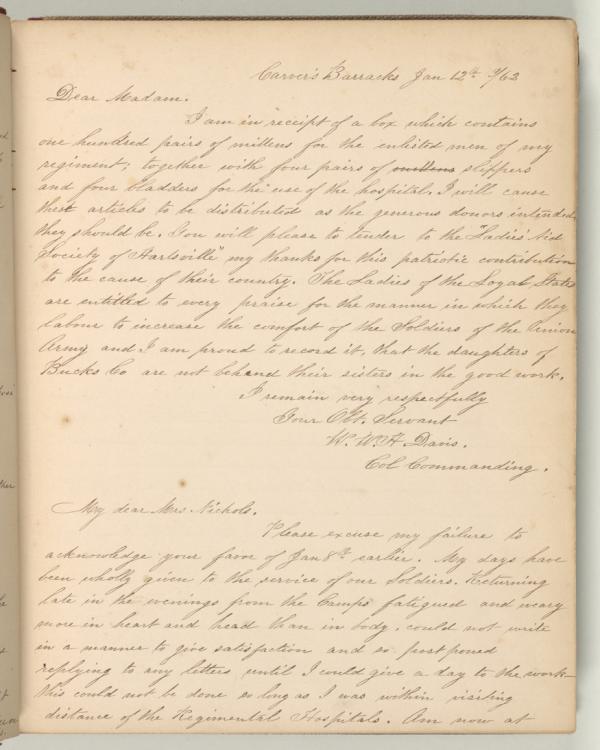 Carver's Barracks Jan 12th 1/63
Dear Madam.
I am in receipt of a box which contains
one hundred pairs of mittens for the enlisted men of my
regiment; together with four pairs of mittens slippers
and four bladders for the use of the hospital. I will cause
these articles to be distributed as the generous donors intended
they should be. You will please to tender to the "Ladies' Aid
Society of Hartsville" my thanks for this patriotic contribution
to the cause of their country. The Ladies of the Loyal States
are entitled to every praise for the manner in which they
labour to increase the comfort of the Soldiers of the Union
Army and I am proud to record it, that the daughters of
Bucks Co are not behind their sisters in the good work.
I remain very respectfully
Your Obt. Servant
W. W. H. Davis.
Col Commanding.
My dear Mrs Nichols.
Please excuse my failure to
acknowledge your favor of Jan 8th earlier. My days have
been wholly given to the service of our Soldiers. Returning
late in the evenings from the Camps fatigued and weary
more in heart and head than in body, could not write
in a manner to give satisfaction and so postponed
replying to any letters until I could give a day to the work—
this could not be done so long as I was within visiting
distance of the Regimental Hospitals. Am now at